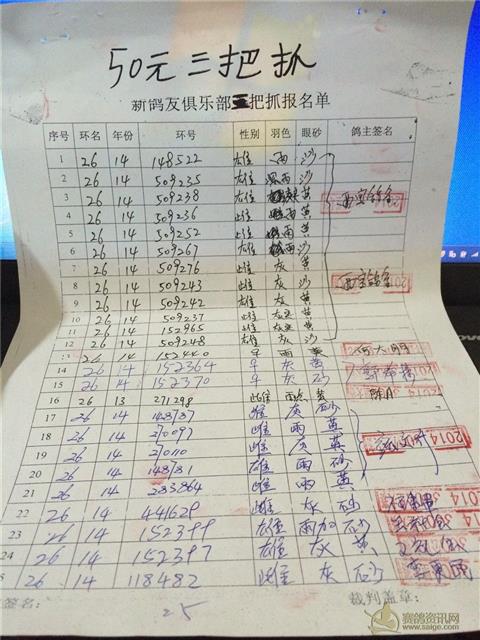 50元三把抓
新鸽友俱乐部三把抓报名单
序号 环名 年份 环号 性别 羽色 眼砂 鸽主签名
1 26 14 148522 雄 雨 沙
2 26 14 509235 雄 雨 沙
3 26 14 509238 雄 黄
4 26 14 509236 雌 雨 黄
5 26 14 509252 雌 雨 黄
6 26 14 509267 雄 雨 沙
7 26 14 509276 雌 灰 黄
8 26 14 509243 雄 灰 沙
9 26 14 509242 雄 灰 黄
10 26 14 509237 雌 灰 黄
11 26 14 152965 雌 灰 黄
12 26 14 509248 雄 灰 沙
13 26 14 152440 平 雨 黄
14 26 14 152364 平 灰 黄
15 26 14 152370 平 灰 砂
16 26 13 271298 雌 雨点 黄
17 26 14 148187 雌 灰 砂
18 26 14 210097 雌 雨 黄
19 26 14 210110 雌 灰 黄
20 26 14 148181 雄 雨 砂
21 26 14 283864 雌 雨 黄
22 26 14 441629 雌 灰 砂
23 26 14 152399 雄 雨加 砂
24 26 14 152397 雄 灰 黄
5 26 14 118482 雌 灰 砂
签名： 25 裁判盖章：
2014
赛鸽资讯网
www.saige.com